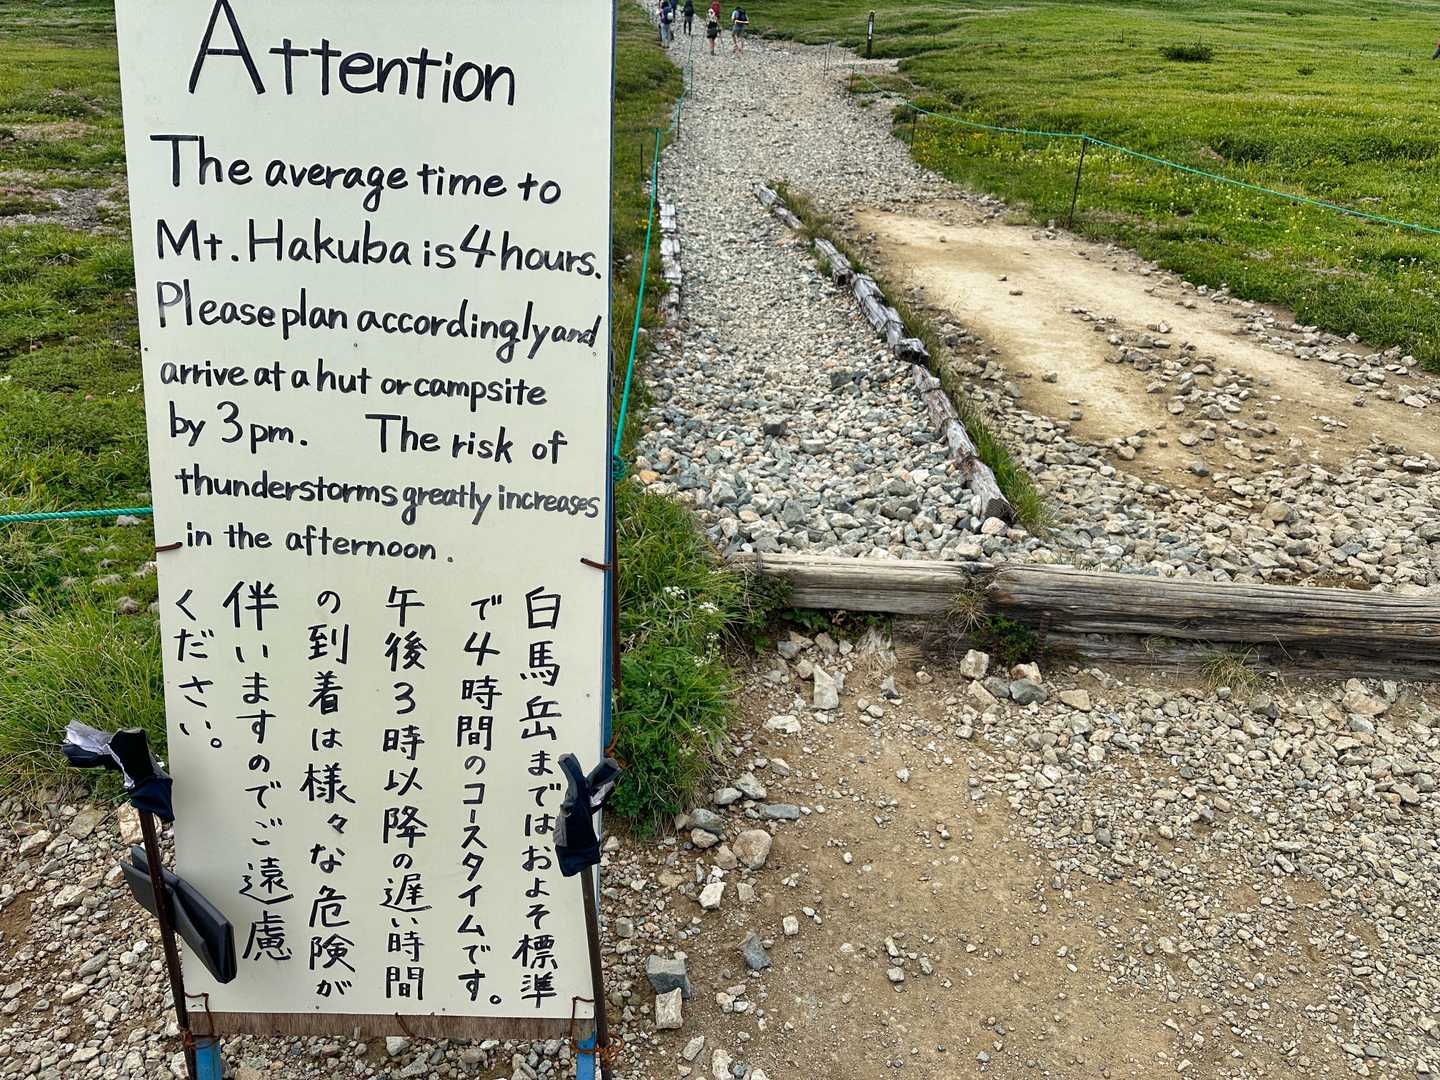 Attention
The average time to
Mt. Hakuba is 4 hours.
Please plan accordingly and
arrive at a hut or campsite
by 3pm. The risk of
thunderstorms greatly increases
in the afternoon.
白馬岳まではおよそ標準
で4時間のコースタイムです。
午後3時以降の遅い時間
の到着は様々な危険が
伴いますのでご遠慮
ください。